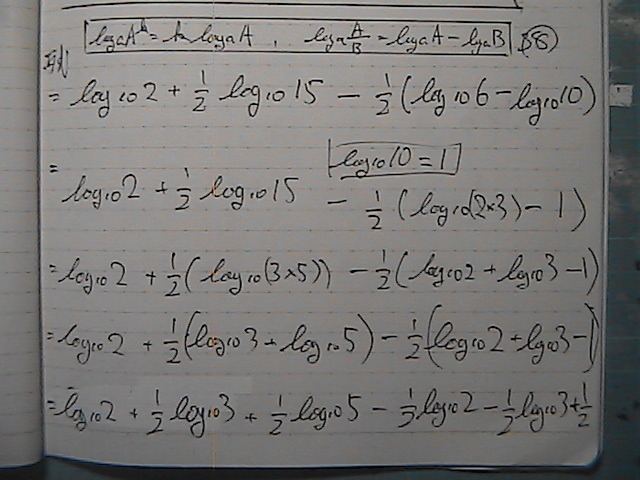 logaA^k = k logaA , loga A/B = logaA - logaB
= log10 2 + 1/2 log10 15 - 1/2 (log10 6 - log10 10)
log10 10 = 1
= log10 2 + 1/2 log10 15 - 1/2 (log10(2×3) - 1)
= log10 2 + 1/2 (log10(3×5)) - 1/2 (log10 2 + log10 3 - 1)
= log10 2 + 1/2 (log10 3 + log10 5) - 1/2 (log10 2 + log10 3 - 1)
= log10 2 + 1/2 log10 3 + 1/2 log10 5 - 1/2 log10 2 - 1/2 log10 3 + 1/2